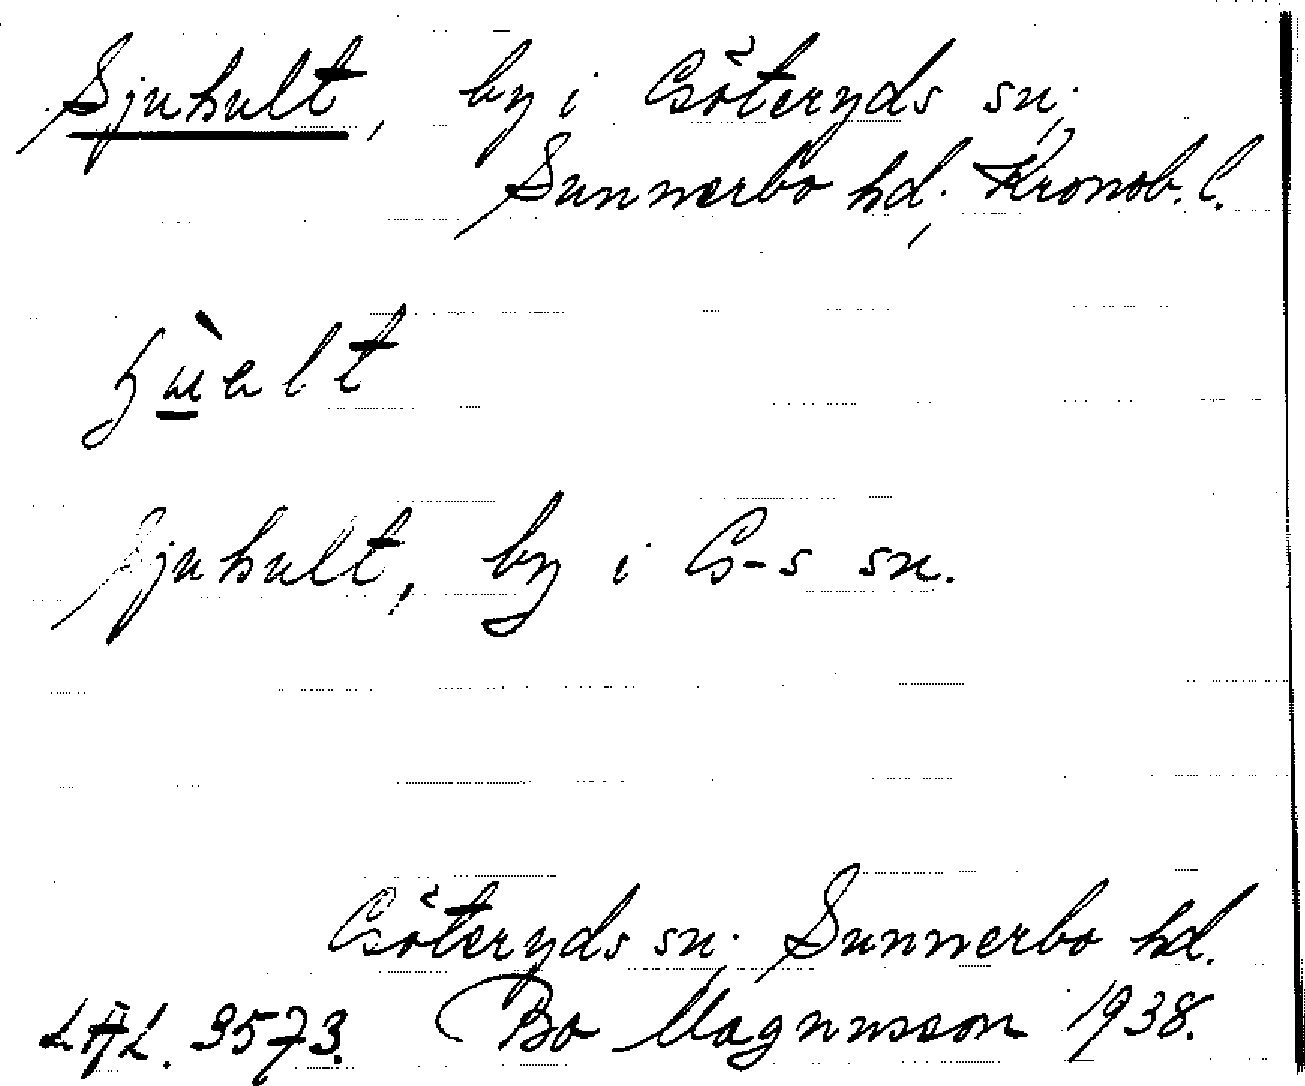 Sjuhult, by i Göteryds sn,
Sunnerbo hd, Kronob. l.
Sjuhult, by i G-s sn.
Göteryds sn. Sunnerbo hd.
LAL. 3573. Bo Magnusson 1938.